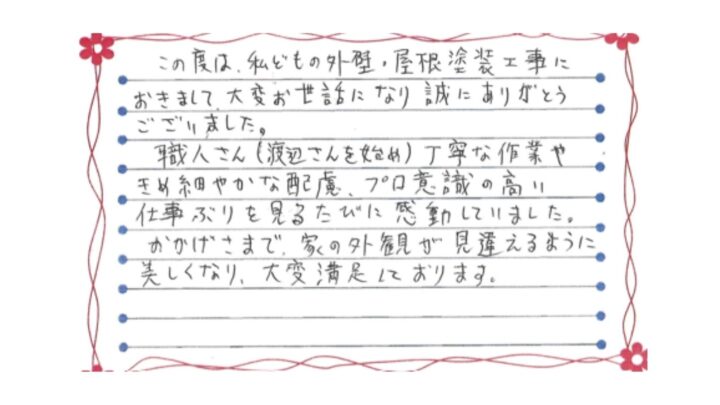 この度は、私どもの外壁・屋根塗装工事に
おきまして、大変お世話になり誠にありがとう
ございました。
職人さん（渡辺さんを始め）丁寧な作業や
きめ細やかな配慮、プロ意識の高い
仕事ぶりを見るたびに感動していました。
おかげさまで、家の外観が見違えるように
美しくなり、大変満足しております。